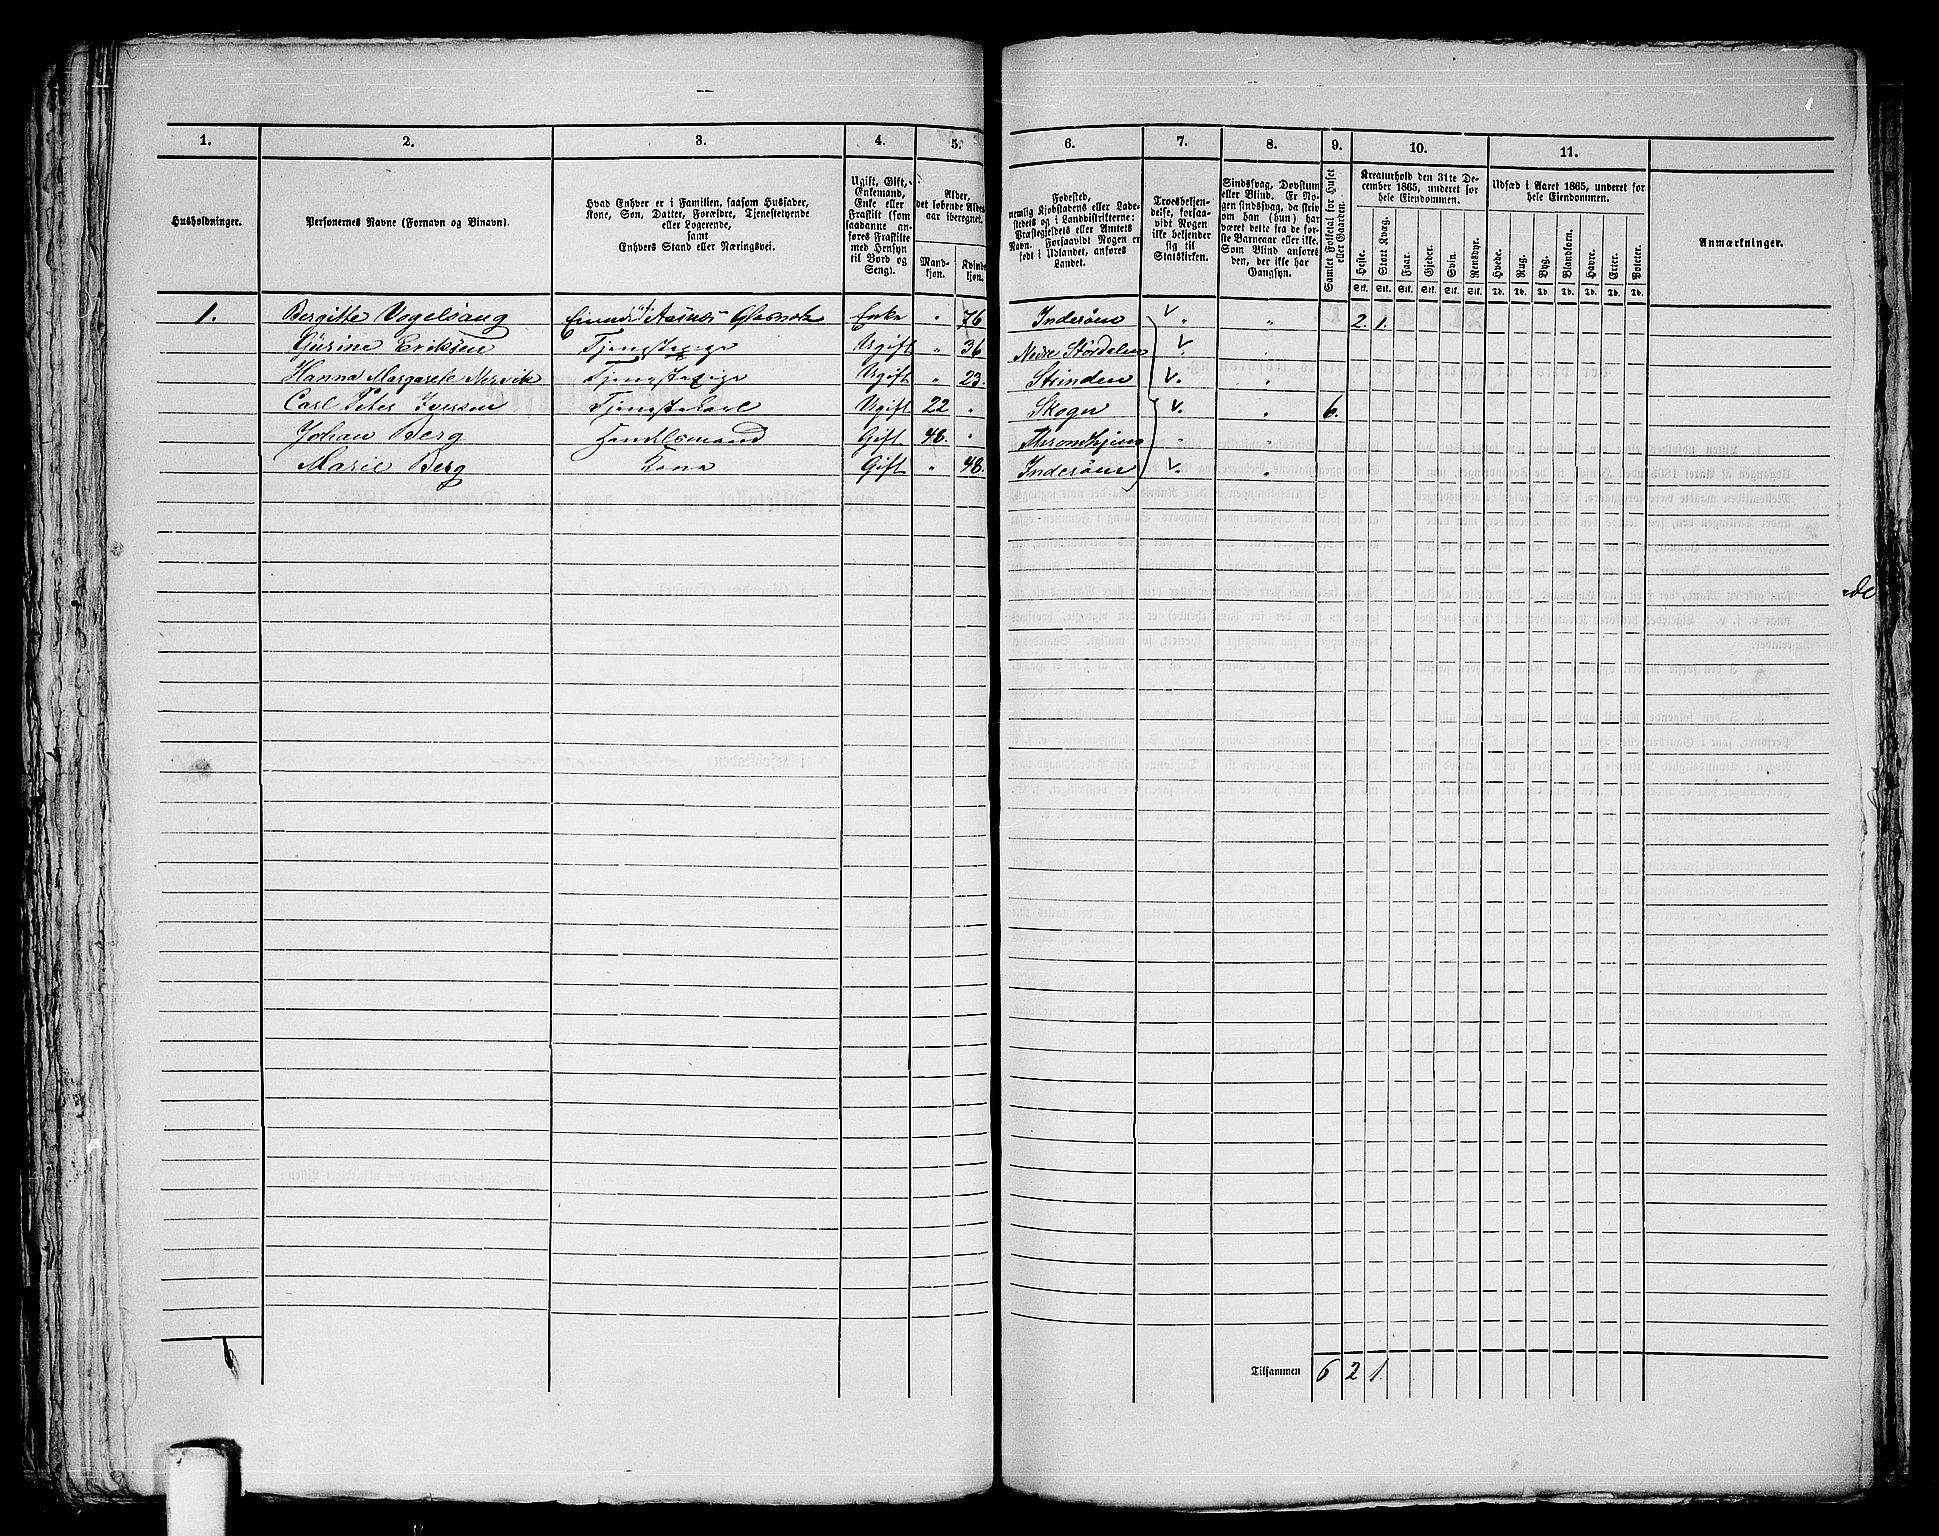 1. 2. 3. 4. 5. 6. 7. 8. 9. 10. 11.
Husholdninger.
Personernes Navne (Fornavn og Binavn).
Hvad Enhver er i Familien, saasom Husfader,
Kone, Søn, Datter, Forældre, Tjenestetyende
eller Logerende,
samt
Enhvers Stand eller Næringsvei.
Ugift, Gift,
Enkemand,
Enke eller
Fraskilt (som
saadanne an-
føres Fraskilte
med Hensyn
til Bord og
Seng).
Alder,
det løbende Alders-
aar iberegnet.
Mand-
kjøn.
Kvinde-
kjøn.
Fødested,
nemlig Kjøbstadens eller Lade-
stedets og i Landdistrikterne:
Præstegjeldets eller Amtets
Navn. Forsaavidt Nogen er
født i Udlandet, anføres
Landet.
Troesbekjen-
delse, forsaa-
vidt Nogen
ikke bekjender
sig til
Statskirken.
Sindssvag, Døvstum
eller Blind. Er No-
gen sindssvag, da skrives
om han (hun) har
været dette fra de før-
ste Barneaar eller ikke.
Som Blind anføres
den, der ikke har
Gangsyn.
Samlet Folketal for Huset
eller Gaarden.
Kreaturhold den 31te De-
cember 1865, underet for
hele Eiendommen.
Heste. Stort Kvæg. Faar. Gjeder. Svin. Rensdyr.
Stk. Stk. Stk. Stk. Stk. Stk.
Udsæd i Aaret 1865, underet for
hele Eiendommen.
Hvede. Rug. Byg. Blandkorn. Havre. Erter. Poteter.
Td. Td. Td. Td. Td. Td. Td.
Anmærkninger.
1. Bergitte Vogelsang Enke " 76 Inderøen V. " " 2. 1.
Gurine Eriksen Tjenestepige Ugift " 36 Nedre Størdalen V.
Hanna Margarete Tjenestepige Ugift " 23. Strinden V. "
Carl Peter Iversen Tjenestekarl Ugift 22 " Skogn V. " 6.
Johan Berg Handelsmand Gift 48. " Throndhjem " "
Marie Berg Kone Gift " 48. Inderøen V. "
6
Tilsammen 6 2 1.